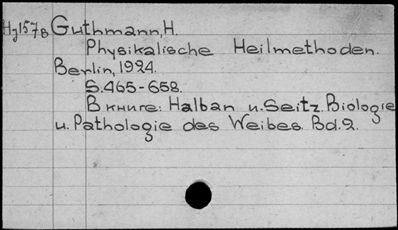 Hy1578 Guthmann, H.
Physikalische Heilmethoden.
Berlin, 1924.
S. 465-658.
В книге: Halban u. Seitz. Biologie
u. Pathologie des Weibes. Bd. 2.